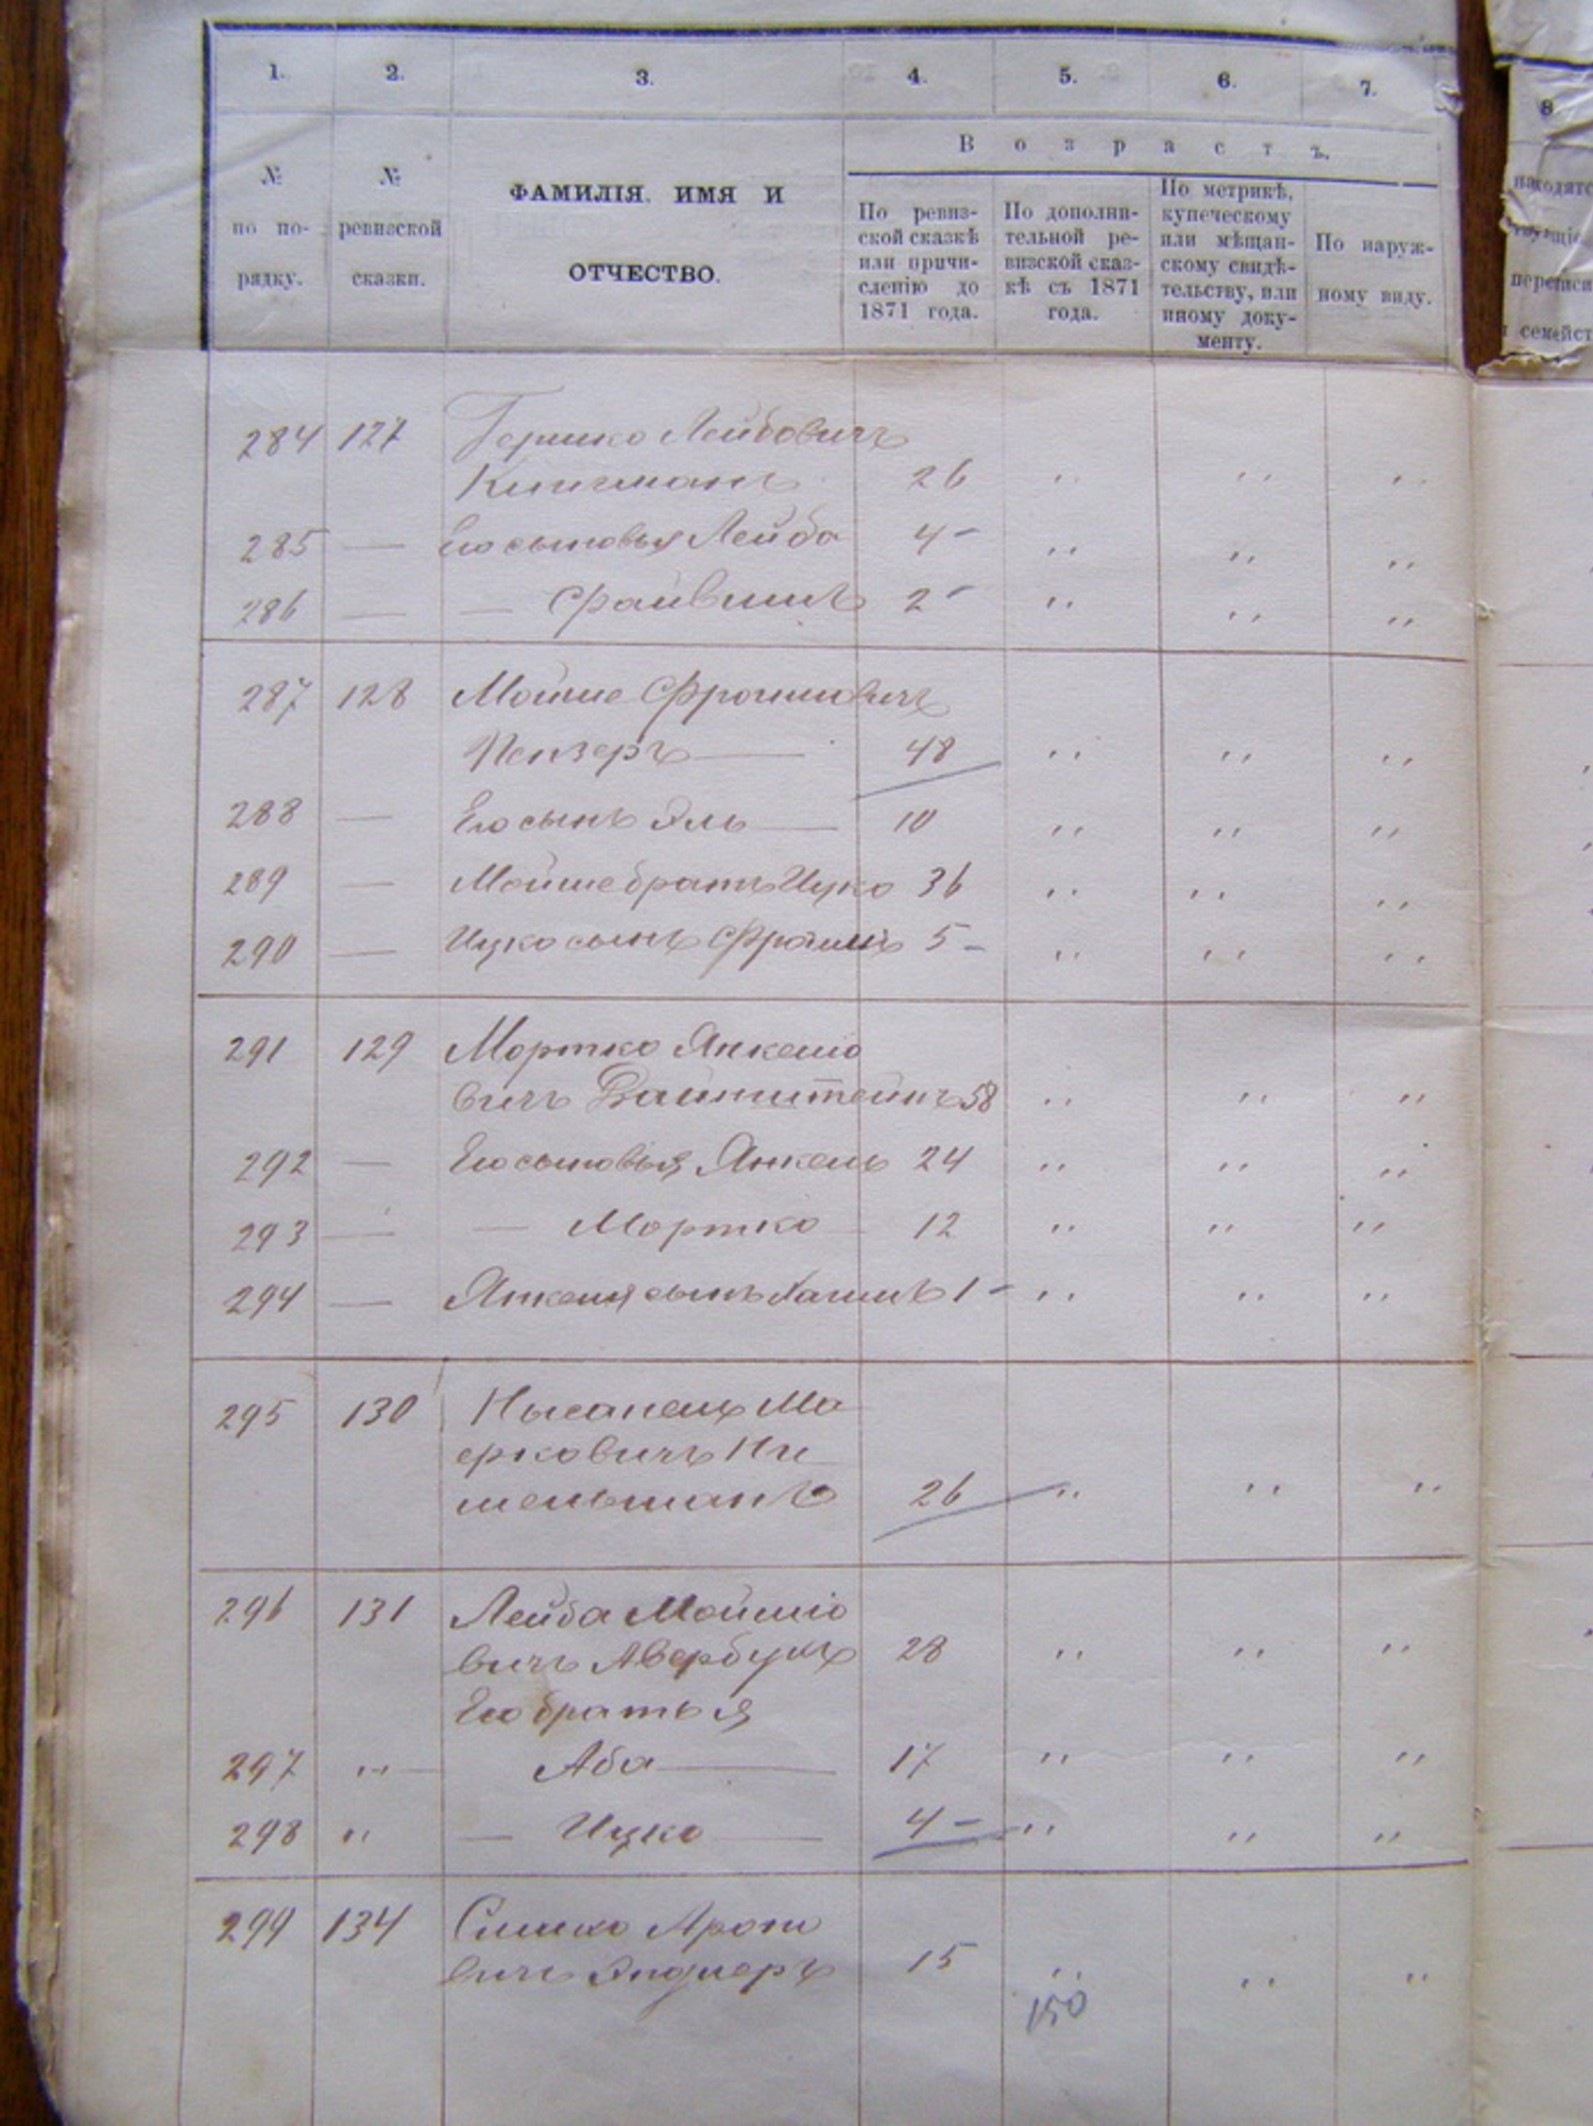 1. 2. 3. 4. 5. 6. 7.
8
№ по по- рядку.
№ ревизской сказки.
ФАМИЛІЯ. ИМЯ И
ОТЧЕСТВО.
Возрастъ.
По ревиз-
ской сказкѣ
или причи-
сленію до
1871 года.
По дополни-
тельной ре-
визской сказ-
кѣ съ 1871
года.
По метрикѣ,
купеческому
или мѣщан-
скому свидѣ-
тельству, или
иному доку-
менту.
По наруж-
ному виду.
семейст
284 127 Гершко Лейбовичъ
26 „ „ „
285 — Его сыновья Лейба 4 – „ „ „
286 — — Файвишъ 2 – „ „ „
287 128 Мойше Фроимовичъ
Пензеръ — 48 „ „ „
288 — Его сынъ Эль — 10 „ „ „
289 — Мойше братъ Ицко 36 „ „ „
290 — Ицко сынъ Фроимъ 5 – „ „ „
291 129 Мортко Янкеліо
вичъ Вайнштейнъ 58 „ „ „
292 — Его сыновья, Янкель 24 „ „ „
293 — — Мортко 12 „ „ „
294 — Янкеля сынъ Хаимъ 1 – „ „ „
295 130 Нысанель Ма
ерковичъ Ни
шельманъ 26 „ „ „
296 131 Лейба Мойшіо
вичъ Авербухъ 28 „ „ „
Его братья
297 „ — Аба — 17 „ „ „
298 „ — Ицко — 4 – „ „ „
299 134 Симхо Ароно
вичъ 15 „ „ „
150